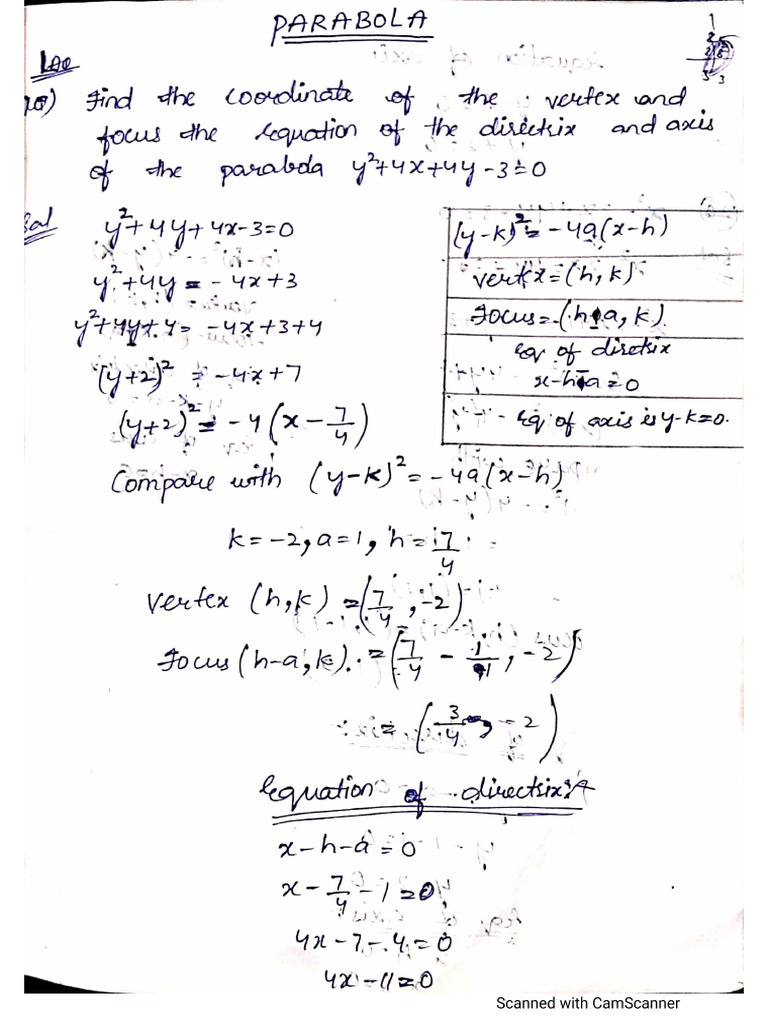 PARABOLA
LAQ
Find the coordinate of the vertex and
focus the equation of the directrix and axis
of the parabola y²+4x+4y-3=0
Sol
y²+4y+4x-3=0
y²+4y=-4x+3
y²+4y+4=-4x+3+4
(y+2)²=-4x+7
(y+2)²=-4(x-7/4)
(y-k)²=-4a(x-h)
vertex=(h,k)
Focus=(h-a,k)
Eq of directrix
x-h-a=0
Eq of axis is y-k=0.
Compare with (y-k)²=-4a(x-h)
k=-2, a=1, h=7/4
Vertex (h,k)=(7/4,-2)
Focus(h-a,k)=(7/4-1/1,-2)
=(3/4,-2)
Equation of directrix:-
x-h-a=0
x-7/4-1=0
4x-7-4=0
4x-11=0
Scanned with CamScanner